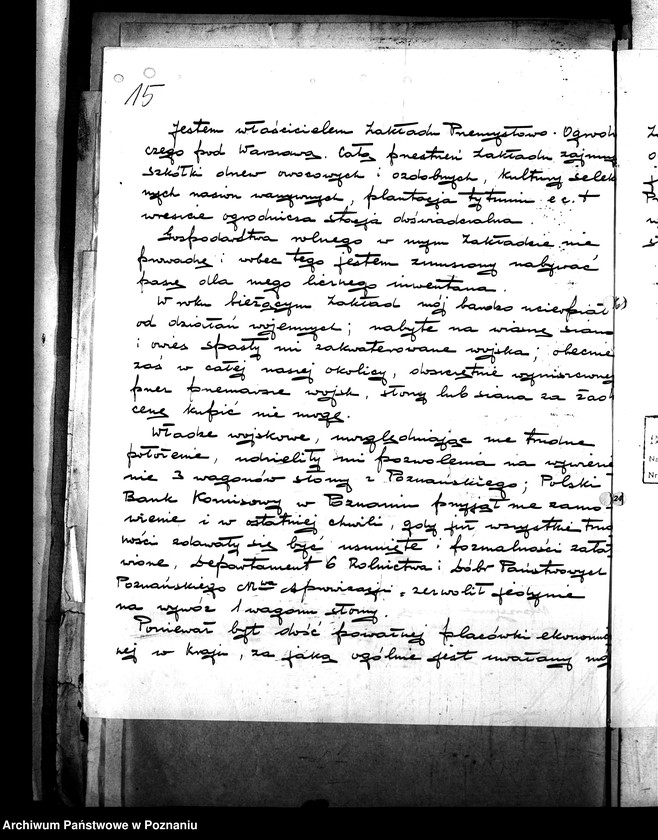 15
Jestem właścicielem Zakładu Przemysłowo-Ogrod
czego pod Warszawą. Całą przestrzeń Zakładu zajmują
szkółki drzew owocowych i ozdobnych, kultury selek
nych nasion warzywnych, plantacja tytuniu e c. t
wreście ogrodnicza stacja doświadczalna.
Gospodarstwa rolnego w mym Zakładzie nie
prowadzę i wobec tego jestem zmuszony nabywać
paszę dla mego licznego inwentarza.
W roku bieżącym Zakład mój bardzo ucierpiał
od działań wojennych; nabyte na wiosnę siano
i owies spasły mi zakwaterowane wojska; obecnie
zaś w całej naszej okolicy, doszczętnie wyniszczonej
przez przemarsze wojsk, słomy lub siana za żad
cenę kupić nie mogę.
Władze wojskowe, uwzględniając me trudne
położenie, udzieliły mi pozwolenia na wywiezie
nie 3 wagonów słomy z Poznańskiego; Polski
Bank Komisowy w Poznaniu przyjął me zamó-
wienie i w ostatniej chwili, gdy już wszystkie trud
ności zdawały się być usunięte i formalności zała
wione, Departament 6 Rolnictwa i Dóbr Państwowych
Poznańskiego M-wa Aprowizacji, zezwolił jedynie
na wywóz 1 wagonu słomy
Ponieważ byt dość poważnej placówki ekonomi
nej w kraju, za jaką ogólnie jest uważany mój
Archiwum Państwowe w Poznaniu